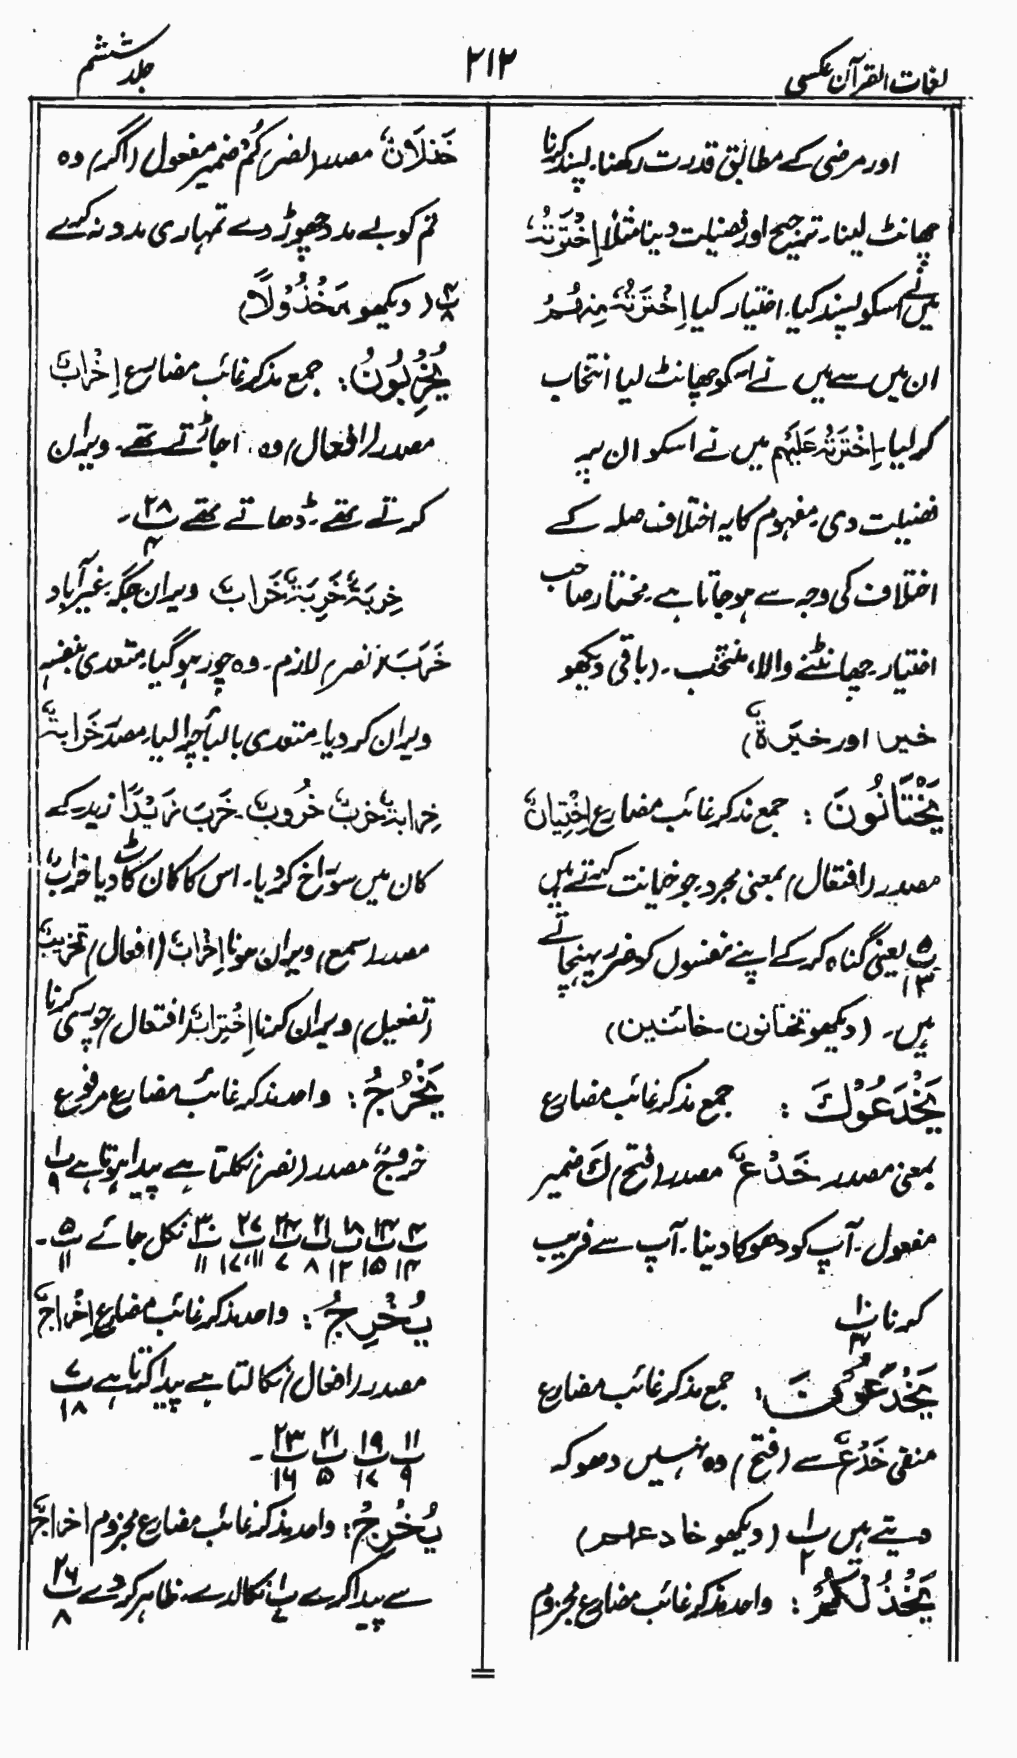 لغات القرآن عکسی
۲۱۲
جلد ششم
اور مرضی کے مطابق قدرت رکھنا۔ پسند کرنا
چھانٹ لینا۔ ترجیح اور فضیلت دینا مثلاً اِخْتَرْتُہٗ
میں نے اسکو پسند کیا۔ اختیار کیا اِخْتَرْتُہٗ مِنْہُمْ
ان میں سے میں نے اسکو چھانٹ لیا انتخاب
کر لیا۔ اِخْتَرْتُہٗ عَلَیْہِم میں نے اسکو ان پر
فضیلت دی۔ مفہوم کا یہ اختلاف صلہ کے
اختلاف کی وجہ سے ہو جاتا ہے۔ مختار صاحب
اختیار۔ چھانٹنے والا، منتخب۔ (باقی دیکھو
خیرا اور خیرۃٌ)
یَخْتَانُونَ : جمع مذکر غائب مضارع اِخْتِیَانٌ
مصدر (افتعال) بمعنی مجرد جو خیانت کرتے ہیں
پ ۵/۱۳ یعنی گناہ کر کے اپنے نفسوں کو ضرر پہنچاتے
ہیں۔ (دیکھو تختانون۔ خائنین)
یَخْدَعُوْكَ : جمع مذکر غائب مضارع
بمعنی مصدر خَدْعٌ مصدر (فتح) كَ ضمیر
مفعول۔ آپ کو دھوکا دینا۔ آپ سے فریب
کرنا پ ۱۰/۴
یَخْدَعُوْنَ : جمع مذکر غائب مضارع
منفی خَدْعٌ سے (فتح) وہ نہیں دھوکہ
دیتے ہیں پ ۱/۲ (دیکھو خادعہم)
یَخْذُلْکُمْ : واحد مذکر غائب مضارع مجزوم
خَذْلَانٌ مصدر (نصر) کُمْ ضمیر مفعول (اگر) وہ
تم کو بے مدد چھوڑ دے تمہاری مدد نہ کرے
پ ۴/۸ (دیکھو مَخْذُوْلًا)
یُخْرِبُوْنَ : جمع مذکر غائب مضارع اِخْرَابٌ
مصدر (افعال) وہ اجاڑتے تھے۔ ویران
کرتے تھے۔ ڈھاتے تھے پ ۲۸/۴۔
خِرِبَۃٌ خَرِبَۃٌ خَرَابٌ ویران جگہ۔ غیر آباد
خَرَبَ (نصر) لازم۔ وہ چور ہو گیا۔ متعدی بنفسہٖ
ویران کر دیا۔ متعدی بالباء چرا لیا۔ مصدر خَرَابۃٌ
خِرابۃٌ خربٌ خُروبٌ۔ خَرَبَ زَیْدًا زید کے
کان میں سوراخ کر دیا۔ اس کا کان کاٹ دیا خرابٌ
مصدر (سمع) ویران ہونا اِخْرَابٌ (افعال) تخریبٌ
(تفعیل) ویران کرنا اِخْتِرَابٌ (افتعال) چوری کرنا
یَخْرُجُ : واحد مذکر غائب مضارع مرفوع
خروجٌ مصدر (نصر) نکلتا ہے پیدا ہوتا ہے پ ۱/۹
پ ۴/۱۴ پ ۱۴/۱۵ پ ۱۸/۱۲ پ ۲۱/۸ پ ۲۴/۷ پ ۲۷/۱۱،۱۷ پ ۳۰/۱۱ نکل جائے پ ۵/۱۱۔
یُخْرِجُ : واحد مذکر غائب مضارع اِخْرَاجٌ
مصدر (افعال) نکالتا ہے پیدا کرتا ہے پ ۷/۱۸
پ ۱۱/۹ پ ۱۹/۱۷ پ ۲۱/۵ پ ۲۳/۱۶۔
یُخْرِجُ : واحد مذکر غائب مضارع مجزوم اخراجٌ
سے پیدا کرے پ ۱/۷ نکالدے۔ ظاہر کر دے پ ۲۶/۸